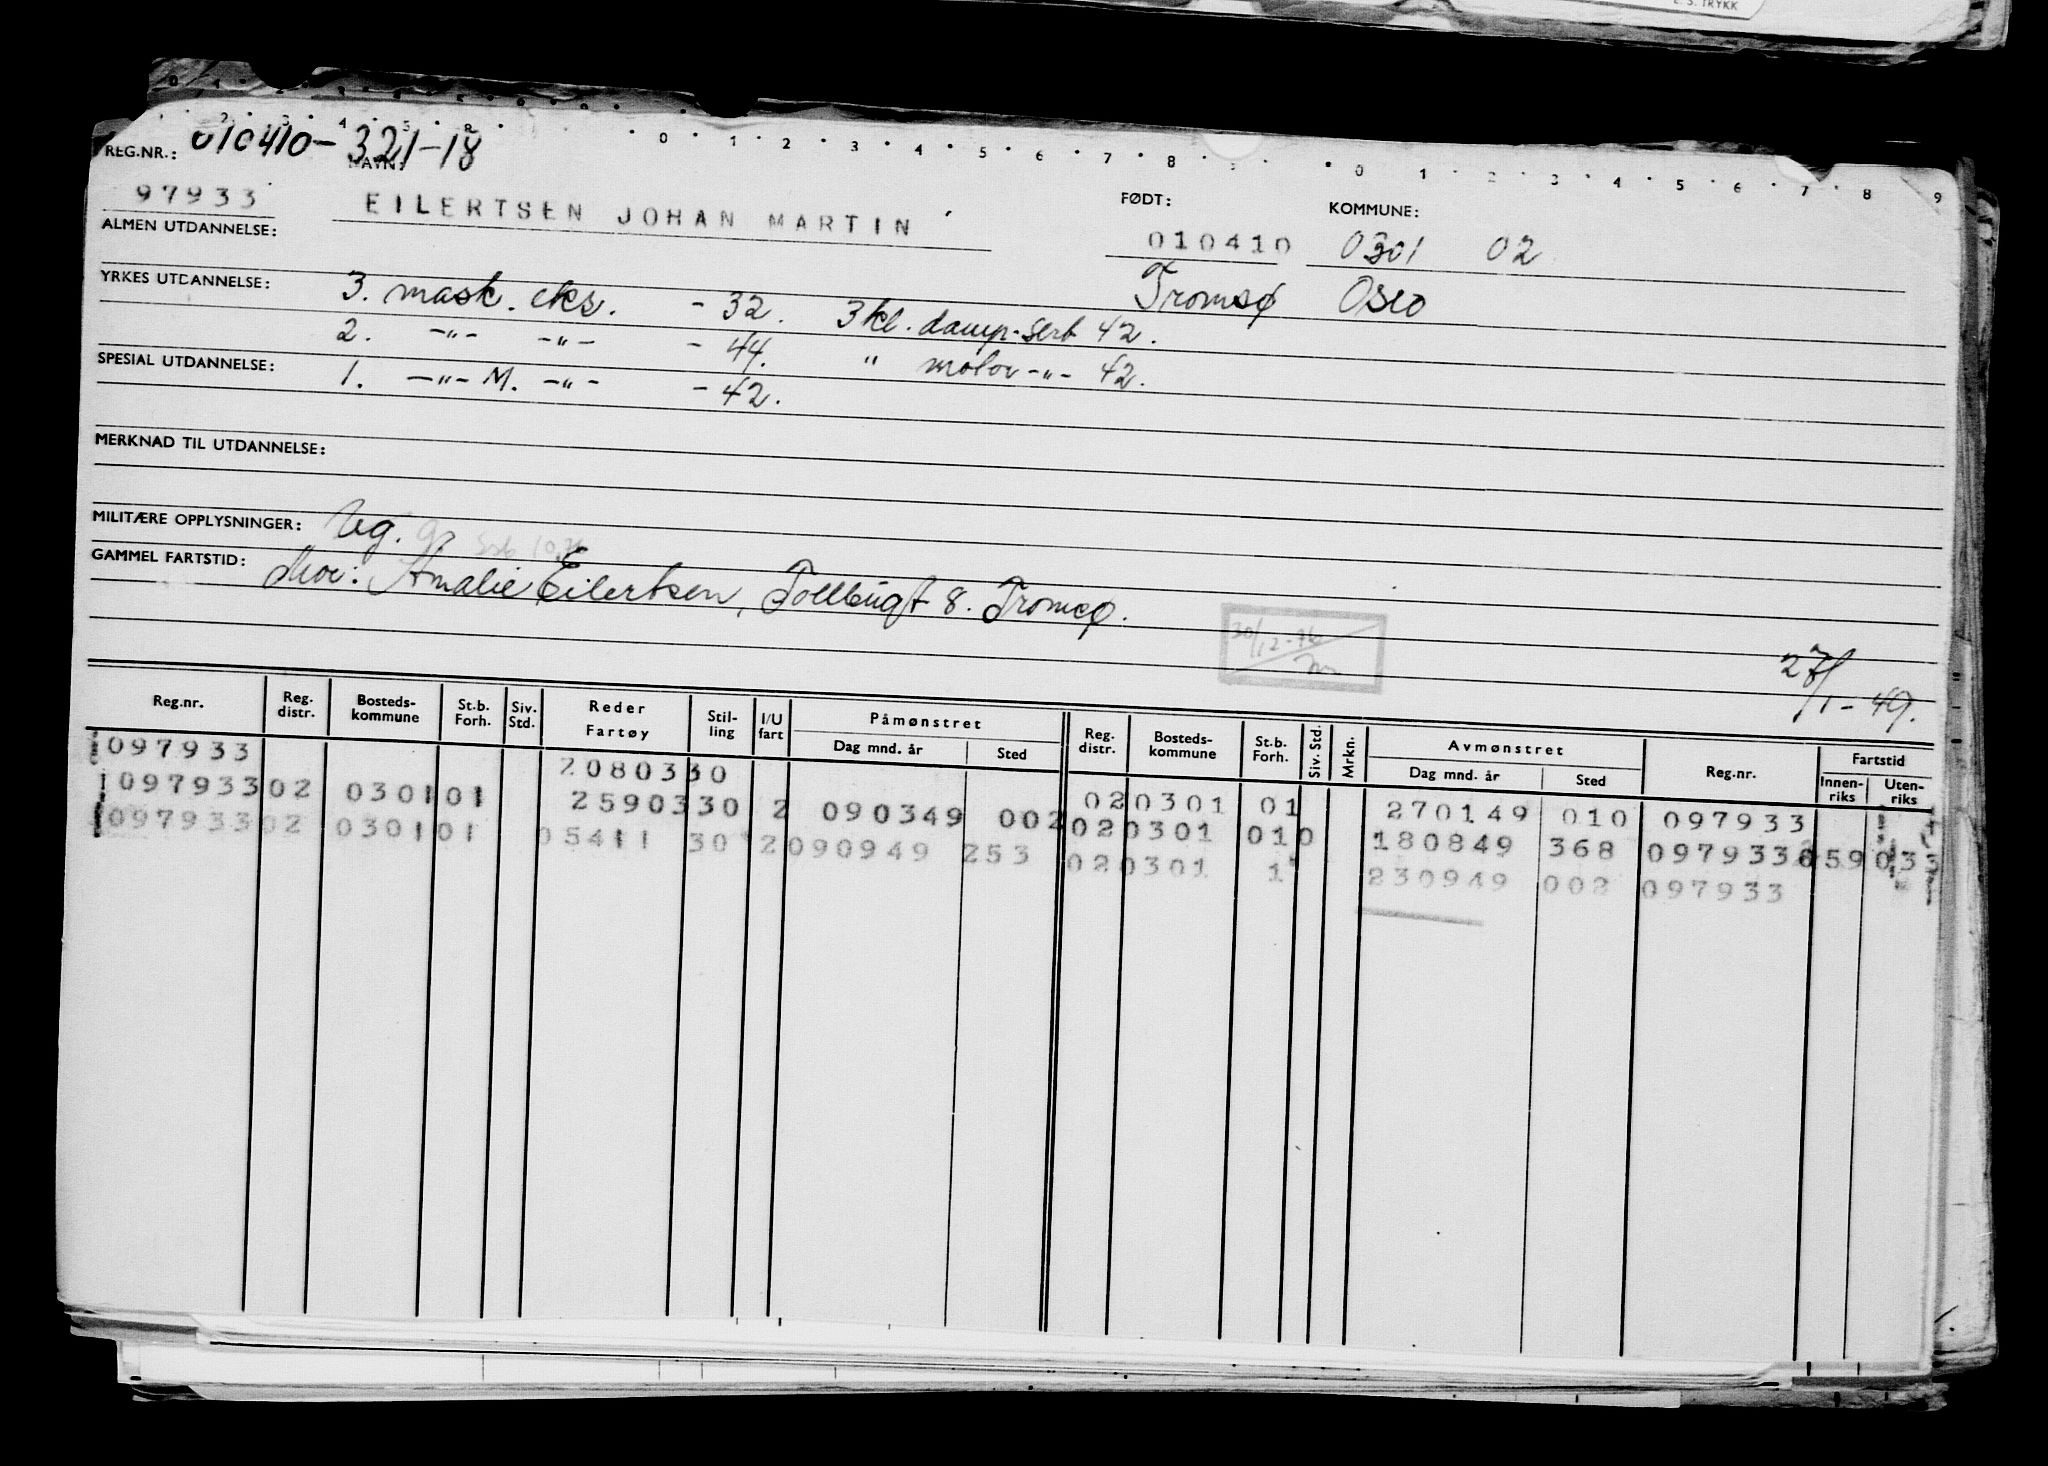 E. S. TRYKK
0 1 2 3 4 5 6 7 8 9 0 1 2 3 4 5 6 7 8 9
REG.NR.: 010410-321-18 NAVN:
97933 EILERTSEN JOHAN MARTIN FØDT: KOMMUNE:
ALMEN UTDANNELSE: 010410 0301 02
Tromsø Oslo
YRKES UTDANNELSE: 3. mask. eks. - 32. 3 kl. damp-sert 42.
2. -"- -"- - 44. " motor -"- 42.
SPESIAL UTDANNELSE: 1. -"- M. -"- - 42.
MERKNAD TIL UTDANNELSE:
MILITÆRE OPPLYSNINGER: Ug.
GAMMEL FARTSTID: Mor: Amalie Eilertsen, Tollbugt 8. Tromsø.
30/12-76
27/1-49.
Reg.nr. Reg. distr. Bosteds- kommune St.b. Forh. Siv. Std. Reder Fartøy Stil- ling I/U fart Påmønstret Dag mnd. år Sted Reg. distr. Bosteds- kommune St.b. Forh. Siv. Std. Mrkn. Avmønstret Dag mnd. år Sted Reg.nr. Fartstid Innen- riks Uten- riks
097933 2080330 02 0301 01 270149 010 097933
097933 02 0301 01 2590330 2 090349 002 02 0301 010 180849 368 097933 6 59 03 3
097933 02 0301 01 05411 30 2 090949 253 02 0301 1 230949 002 097933